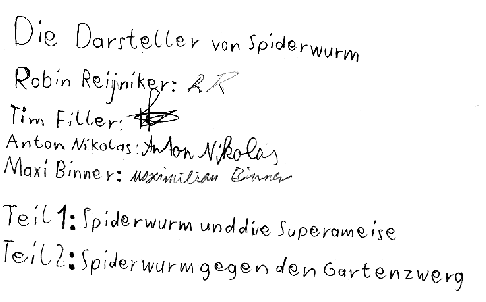 Die Darsteller von Spiderwurm
Robin Reijniker: RR
Tim Filler:
Anton Nikolas: Anton Nikolas
Maxi Binner: Maximilian Binner
Teil 1: Spiderwurm und die Superameise
Teil 2: Spiderwurm gegen den Gartenzwerg